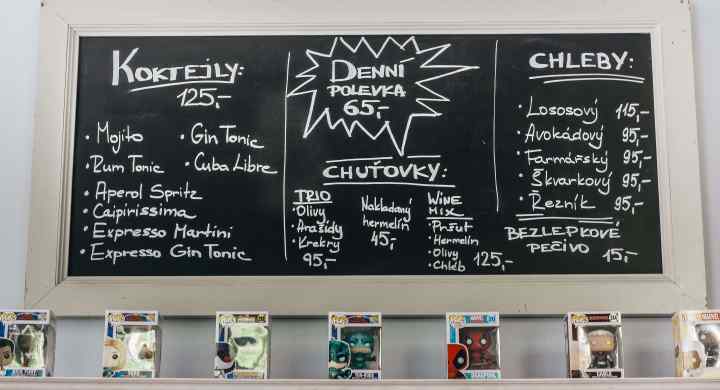 KOKTEJLY:
125,-
• Mojito
• Gin Tonic
• Rum Tonic
• Cuba Libre
• Aperol Spritz
• Caipirissima
• Expresso Martini
• Expresso Gin Tonic
DENNÍ
POLEVKA
65,-
CHUŤOVKY:
TRIO
• Olivy
• Arašídy
• Krekry
95,-
Nakladaný
hermelín
45,-
WINE
MIX
• Pršut
• Hermelín
• Olivy
• Chléb 125,-
CHLEBY:
• Lososový 115,-
• Avokádový 95,-
• Farmářský 95,-
• Škvarkový 95,-
• Řezník 95,-
BEZLEPKOVÉ
PEČIVO 15,-
POP!
POP!
POP!
POP!
POP! MARVEL
DEADPOOL
POP!
CABLE
MARVEL